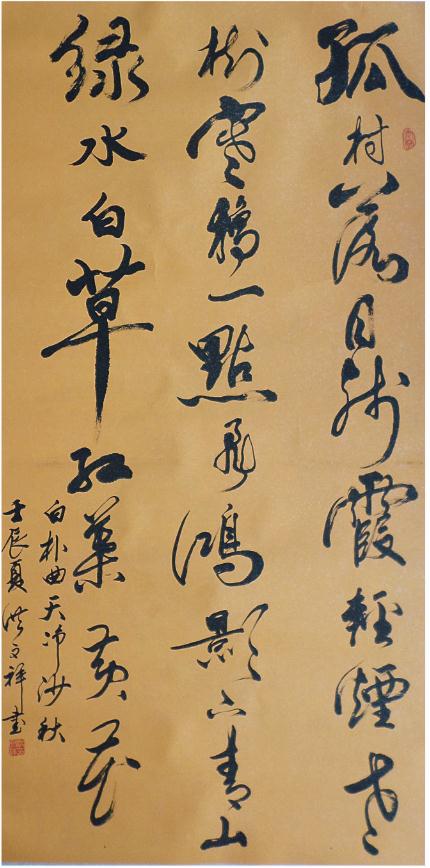 孤村落日殘霞輕煙老
樹寒鴉一點飛鴻影下青山
綠水白草紅葉黃花
白朴曲天净沙秋
壬辰夏洪文祥書